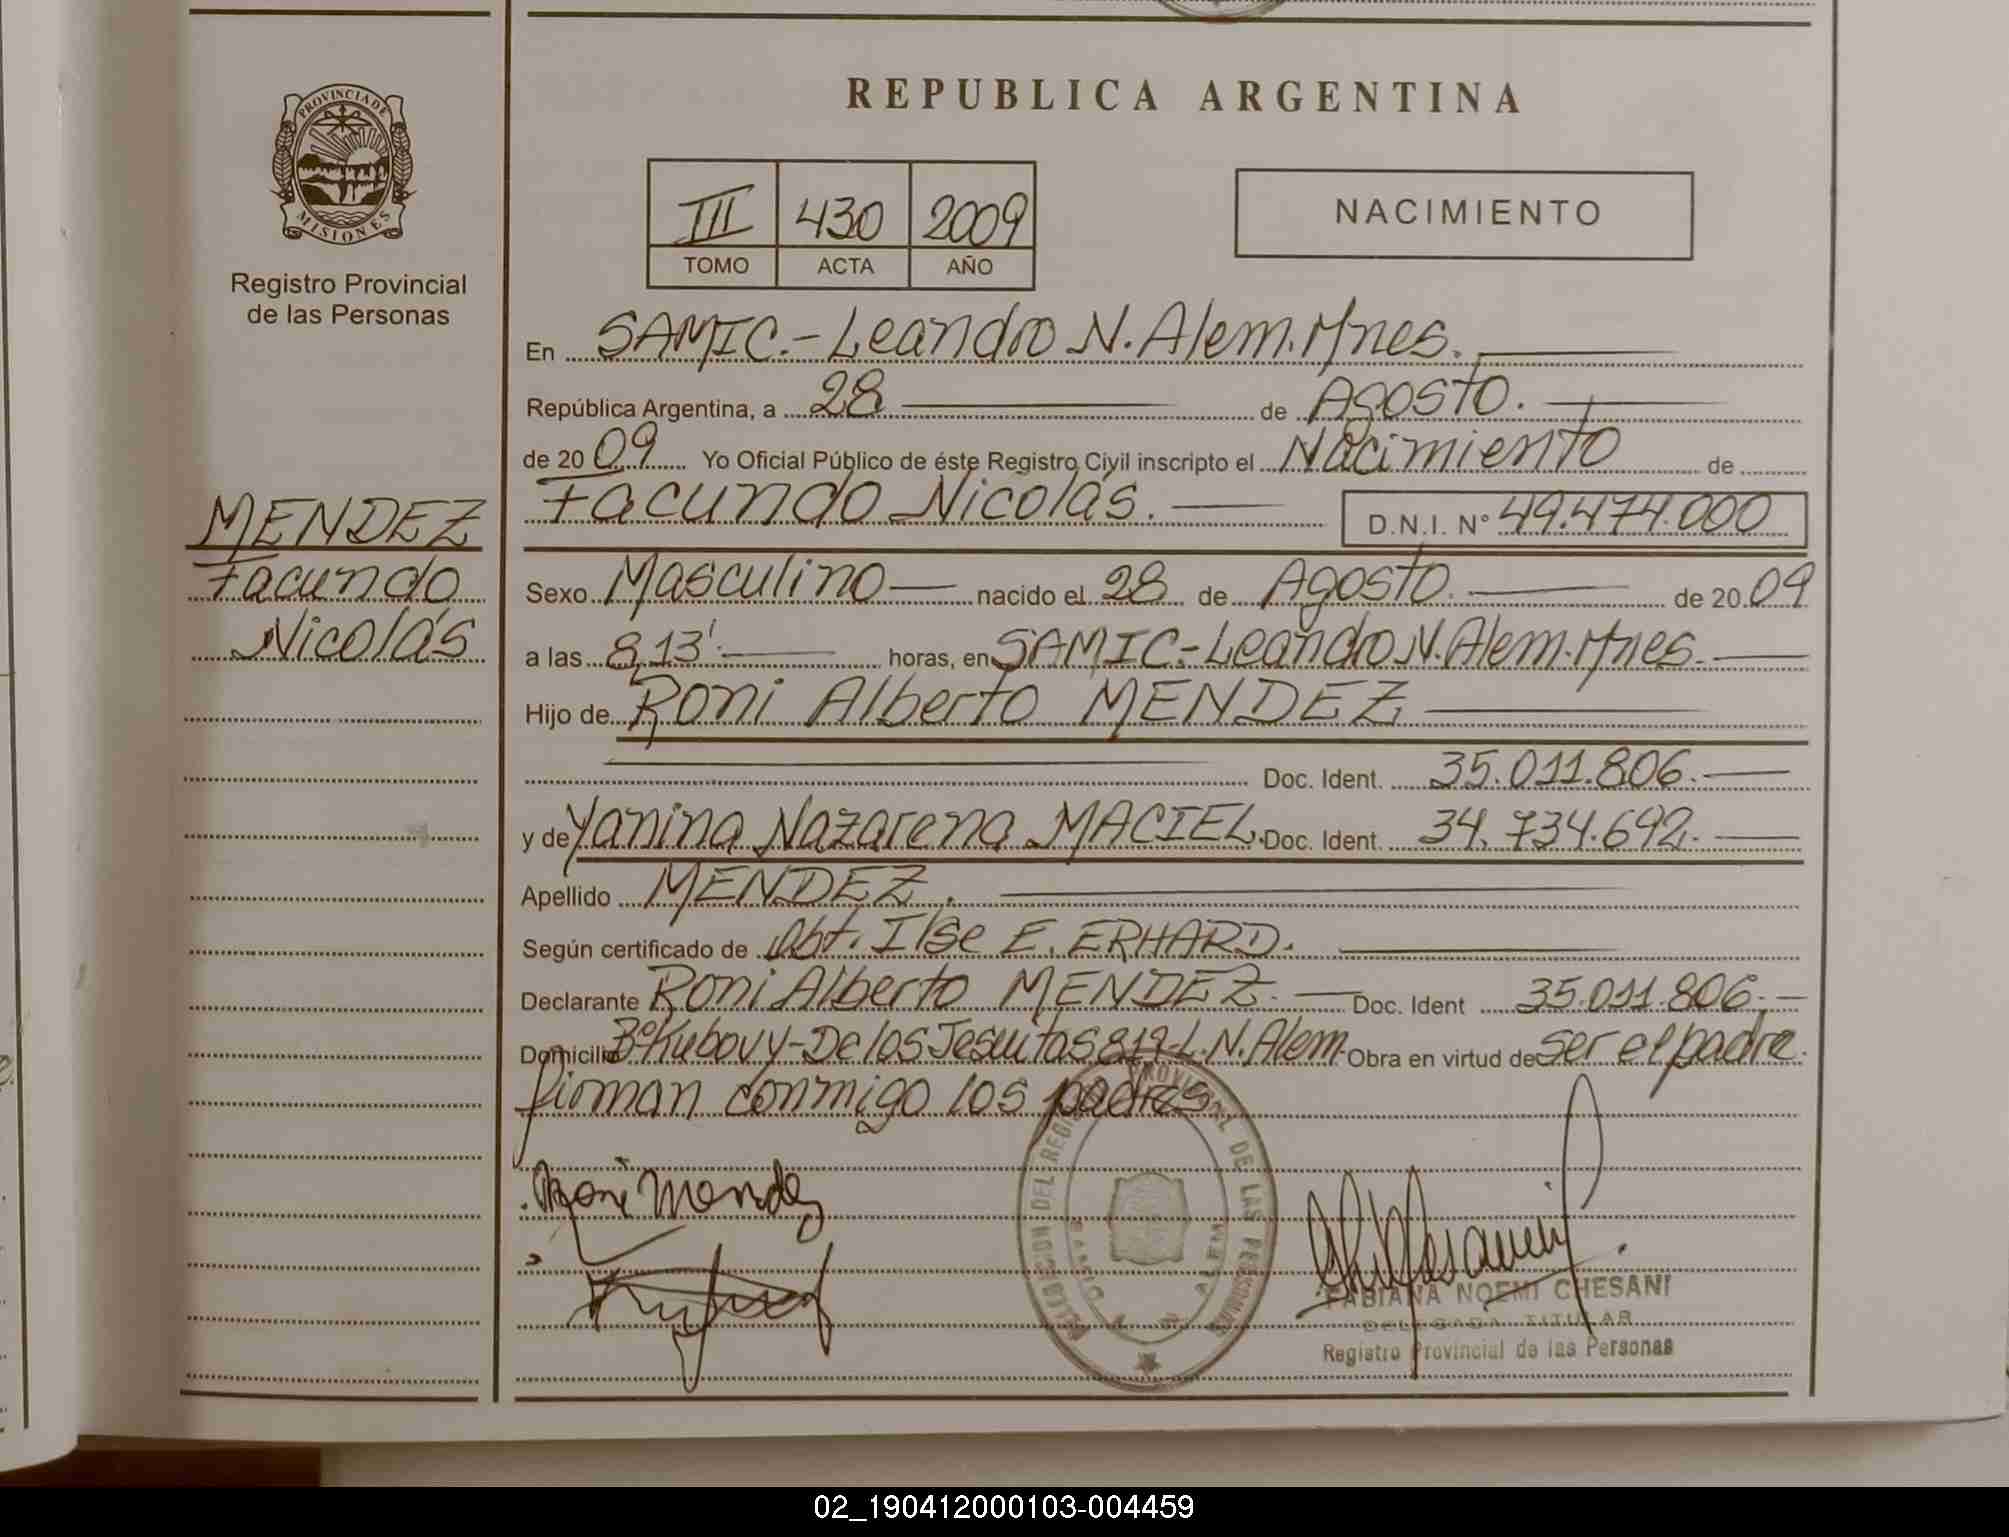 PROVINCIA DE
MISIONES
Registro Provincial
de las Personas
MENDEZ
Facundo
Nicolás
REPUBLICA ARGENTINA
III 430 2009
TOMO ACTA AÑO
NACIMIENTO
En SAMIC.- Leandro N. Alem. Mnes.
República Argentina, a 28 de Agosto.
de 2009 Yo Oficial Público de éste Registro Civil inscripto el Nacimiento de
Facundo Nicolás. D.N.I. N° 49.474.000
Sexo Masculino nacido el 28 de Agosto. de 2009
a las 8,13' horas, en SAMIC.- Leandro N. Alem. Mnes.
Hijo de Roni Alberto MENDEZ
Doc. Ident. 35.011.806.
y de Yanina Nazarena MACIEL. Doc. Ident. 34.734.692.
Apellido MENDEZ.
Según certificado de Obt. Ilse E. ERHARD.
Declarante Roni Alberto MENDEZ. Doc. Ident 35.011.806.
Domicilio B° Kubovy - De los Jesuitas L. N. Alem. Obra en virtud de ser el padre.
firman conmigo los padres
Roni Mendez
DELEGACION DEL REGISTRO PROVINCIAL DE LAS PERSONAS
ALEM
FABIANA NOEMI CHESANI
DELEGADA TITULAR
Registro Provincial de las Personas
02_190412000103-004459